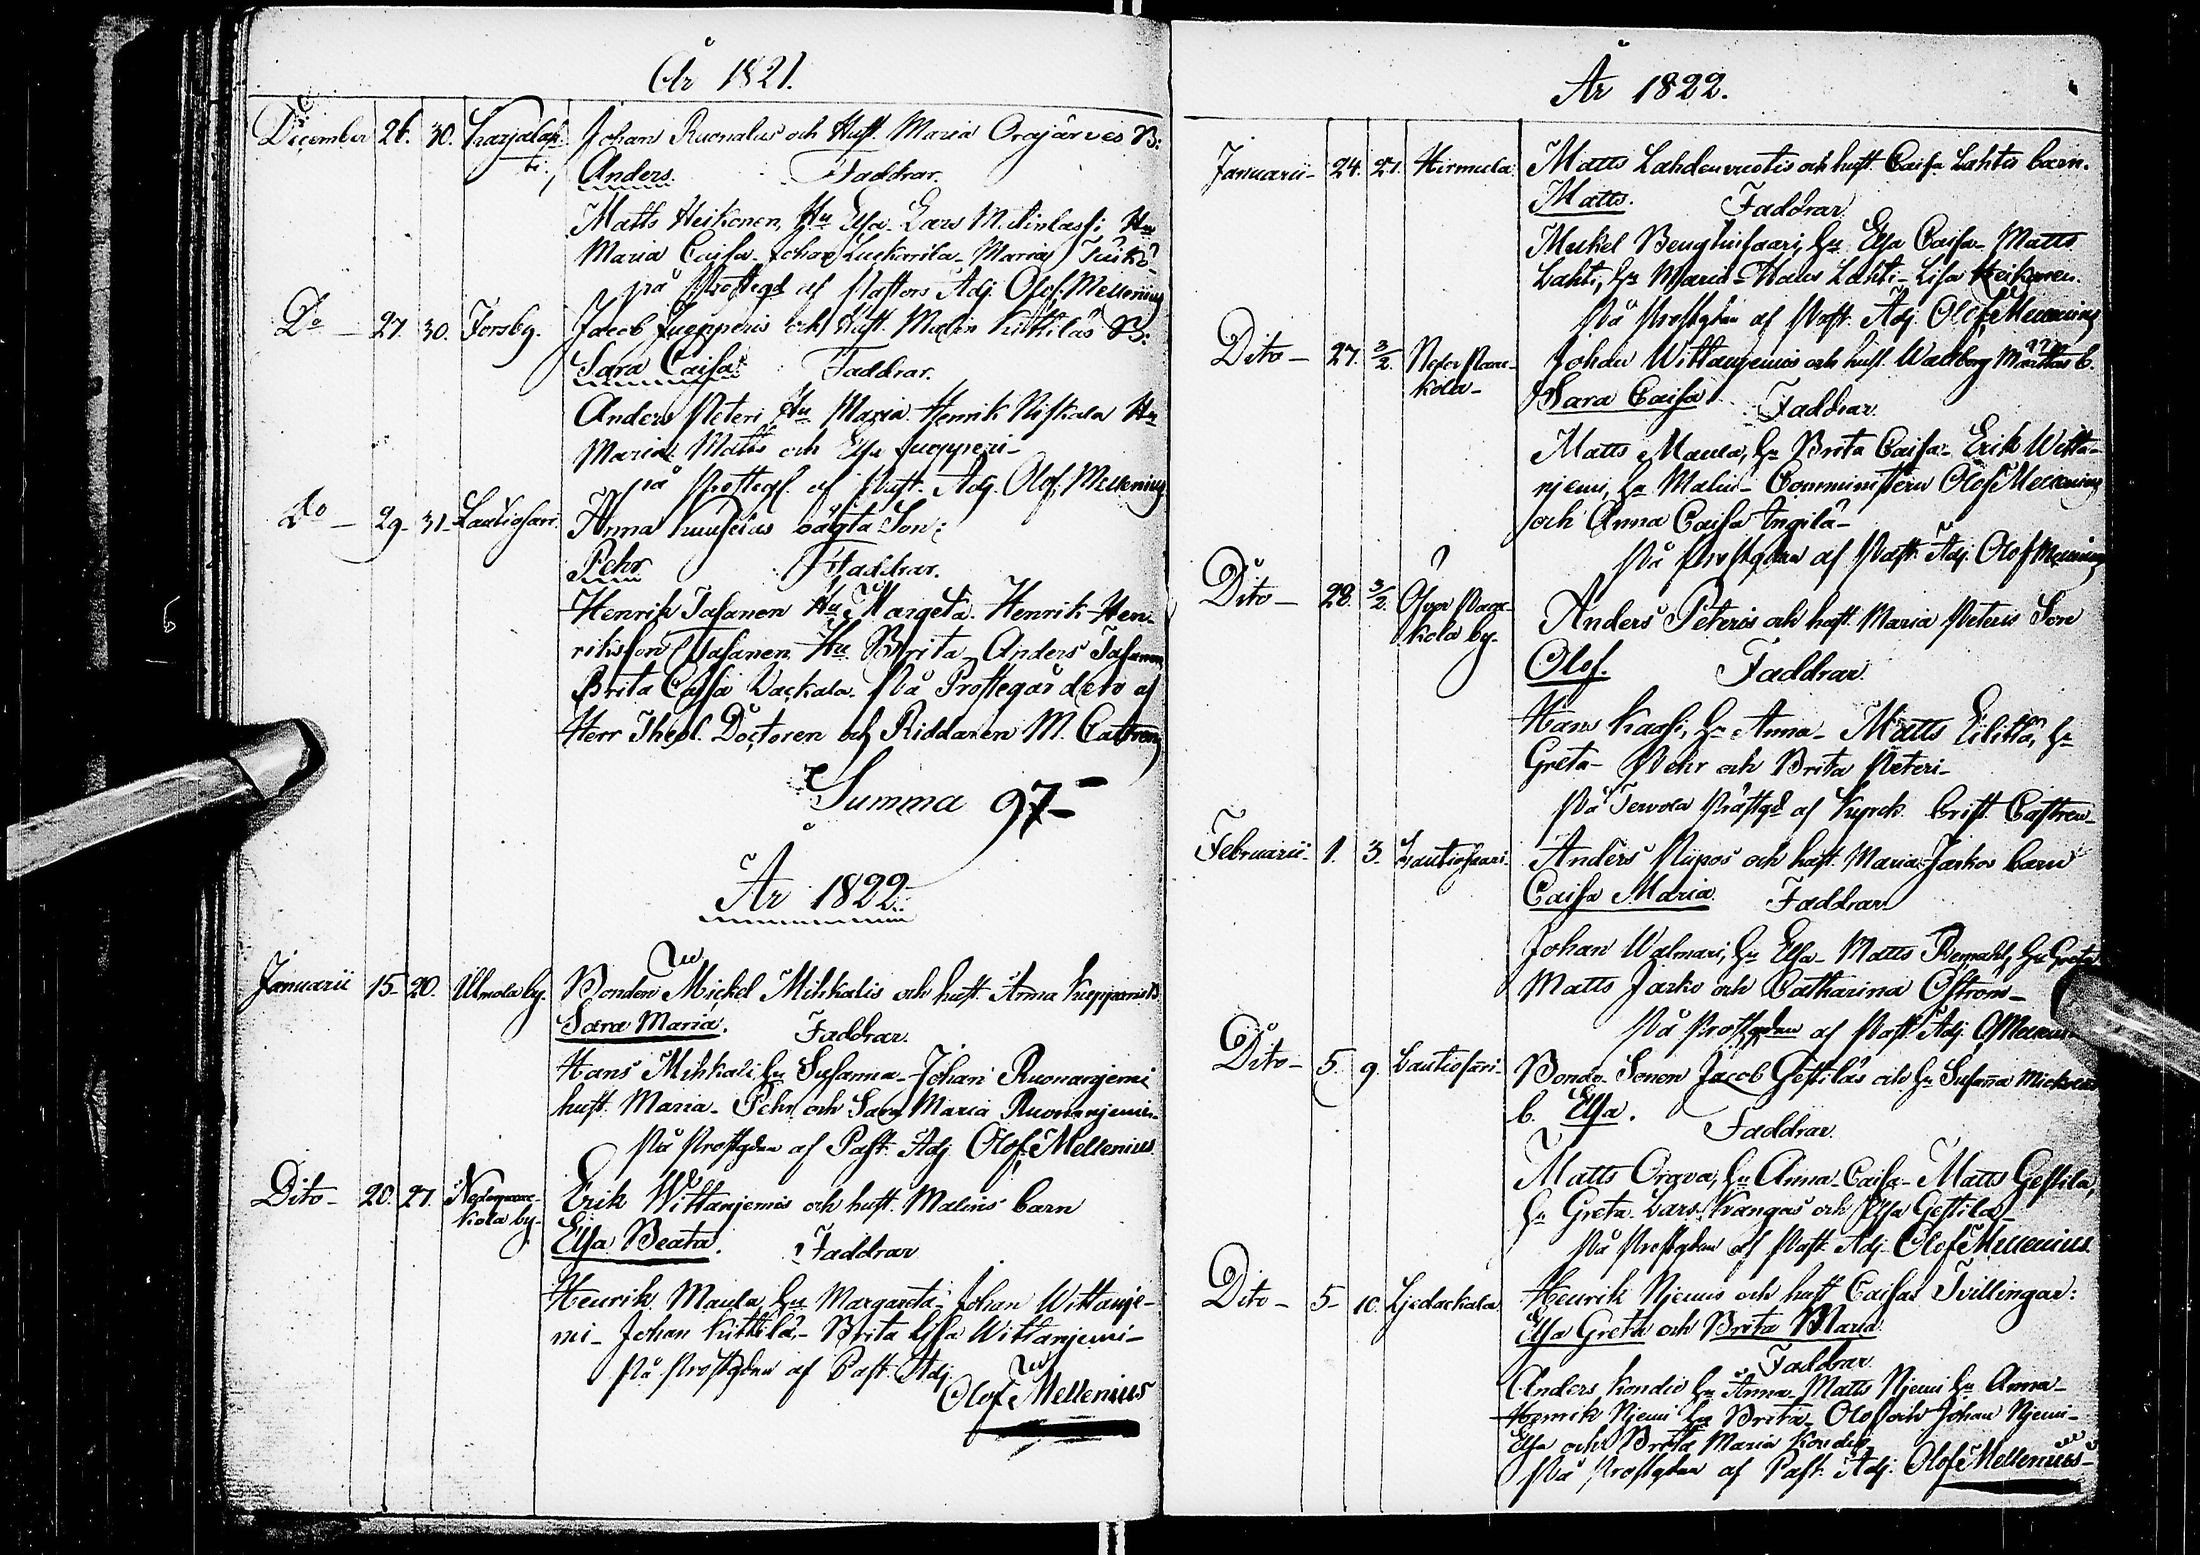 År 1821.
December 26. 30. Karjalah-
ti. Johan Ruonalas och Hust. Maria Orajärves B:
Anders. Faddrar.
Matts Heikonen, Hu Elsa. Lars Hu
Maria Caisa. Johan Maria
på Prosteg af Pastors Adj. Olof Mellenius
Do 27. 30. Forsby. Jacob Juopperis och Hust. Malin Kittiläs B:
Sara Caisa Faddrar.
Anders Peteri Hu Maria Henrik Niskala Hu
Maria Matts och Elsa Juopperi-
på Prosteg. af Past. Adj. Olof Mellenius
Do 29. 31. Lautiosari. Anna oägta Son:
Pehr Faddrar.
Henrik Tasanen Hu Margeta. Henrik Hen-
rikson Tasanen Hu Brita, Anders Tasanen
Brita Caisa Vackala. På Prostegården af
Herr Theol. Doctoren och Riddaren M. Castren
Summa 97-
År 1822.
Januarii 15- 20. Ulmola by. Bonden Mickel Mihkalis och hust. Anna B
Sara Maria. Faddrar.
Hans Mihkali hu Susanna- Johan Ruonanjemi
hust. Maria- Pehr och Sara Maria Ruonanjemi-
På Prostgden af Past. Adj. Olof Mellenius
Dito- 20. 27. Nederwoja-
kola by- Erik Wittanjemis och hust. Malins barn
Elsa Beata. Faddrar
Henrik Maula hu Margareta- Johan Wittanje-
mi- Johan Kittilä- Brita Lisa Wittanjemi-
På Prostgden af Past. Adj.
Olof Mellenius
År 1822.
Januarii- 24. 27. Hirmula Matts Lahdenvestis och hust. Caisa Lahtis barn.
Matts. Faddrar
Mickel hu Elsa Caisa- Matts
Lahti, hu Maria- Hans Lahti- Lisa Heikonen.
På Prostgden af Past. Adj. Olof Mellenius
Dito- 27. 3/2. Neder
kola- Johan Wittanjemis och hust. Walborg Marttas b.
Sara Caisa. Faddrar.
Matts Maula, hu Brita Caisa- Erik Witta-
njemi, hu Malin- Comministern Olof Mellenius
och Anna Caisa Ingilä-
På Prostgden af Past. Adj. Olof Mellenius
Dito- 28. 3/2. Öfver
kola by. Anders Peteris och hust. Maria Peteris Son
Olof. Faddrar
Hans Kaasi, hu Anna- Matts Eilittä, hu
Greta- Pehr och Brita Peteri-
På Tervola Prästgd af Castren-
Februarii- 1. 3. Lautiosaari- Anders Piipos och hust. Maria Jarkos barn
Caisa Maria. Faddrar
Johan Walmari, hu Elsa- Matts hu Greta
Matts Jarko och Catharina Öström-
På Prostgden af Past. Adj.
Dito- 5. 9. Lautiosari- Bonde Sonen Jacob Gestiläs och hu Susanna
b. Elsa. Faddrar.
Matts Orava, hu Anna Caisa- Matts Gestila,
hu Greta. Lars Kangas och Elsa Gestila-
På Prostgden af Past. Adj. Olof Mellenius
Dito- 5- 10. Henrik Njemis och hust Caisas Tvillingar:
Elsa Greta och Brita Maria
Faddrar
Anders Kondio hu Anna- Matts Njemi hu Anna-
Henrik Njemi hu Brita- Olof och Johan Njemi-
Elsa och Brita Maria Kondio
På Prostgden af Past. Adj. Olof Mellenius-